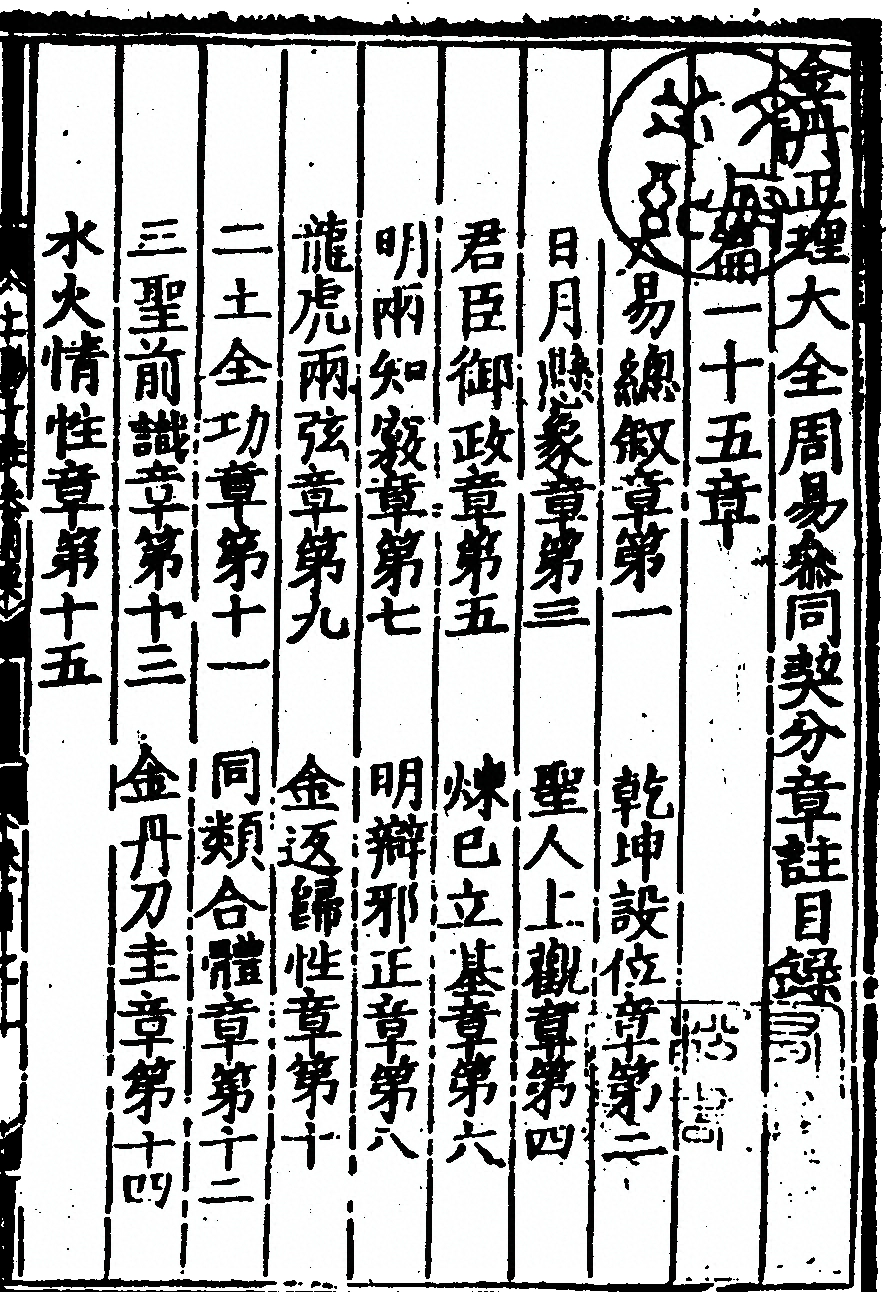 金丹正理大全周易叅同契分章註目錄
上篇一十五章
大易總叙章第一
乾坤設位章第二
日月懸象章第三
聖人上觀章第四
君臣御政章第五
煉已立基章第六
明兩知竅章第七
明辯邪正章第八
龍虎兩弦章第九
金返歸性章第十
二土全功章第十一
同類合體章第十二
三聖前識章第十三
金丹刀圭章第十四
水火情性章第十五